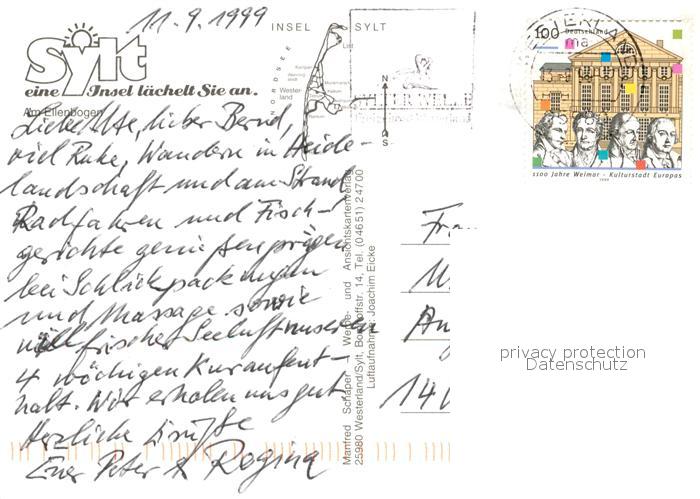 11.9.1999
INSEL SYLT
Sylt
eine Insel lächelt Sie an.
Am Ellenbogen
NORDSEE
List
Westerland
Liebe Ute, lieber Bernd,
viel Ruhe, Wandern in Heide-
landschaft und am Strand
Radfahren und Fisch-
gerichte genießen prägen
bei Schlickpackungen
und Massage sowie
viel frischer Seeluft unseren
4 wöchigen Kuraufent-
halt. Wir erholen uns gut
Herzliche Grüße
Euer Peter & Regina
Manfred Schaper Werbe- und Ansichtskartenverlag
25980 Westerland/Sylt, Bomhoffstr. 14, Tel. (04651) 24700
Luftaufnahme: Joachim Eicke
N
S
WESTERLAND
100 Deutschland
1100 Jahre Weimar - Kulturstadt Europas
1999
Fr
An
140
privacy protection
Datenschutz